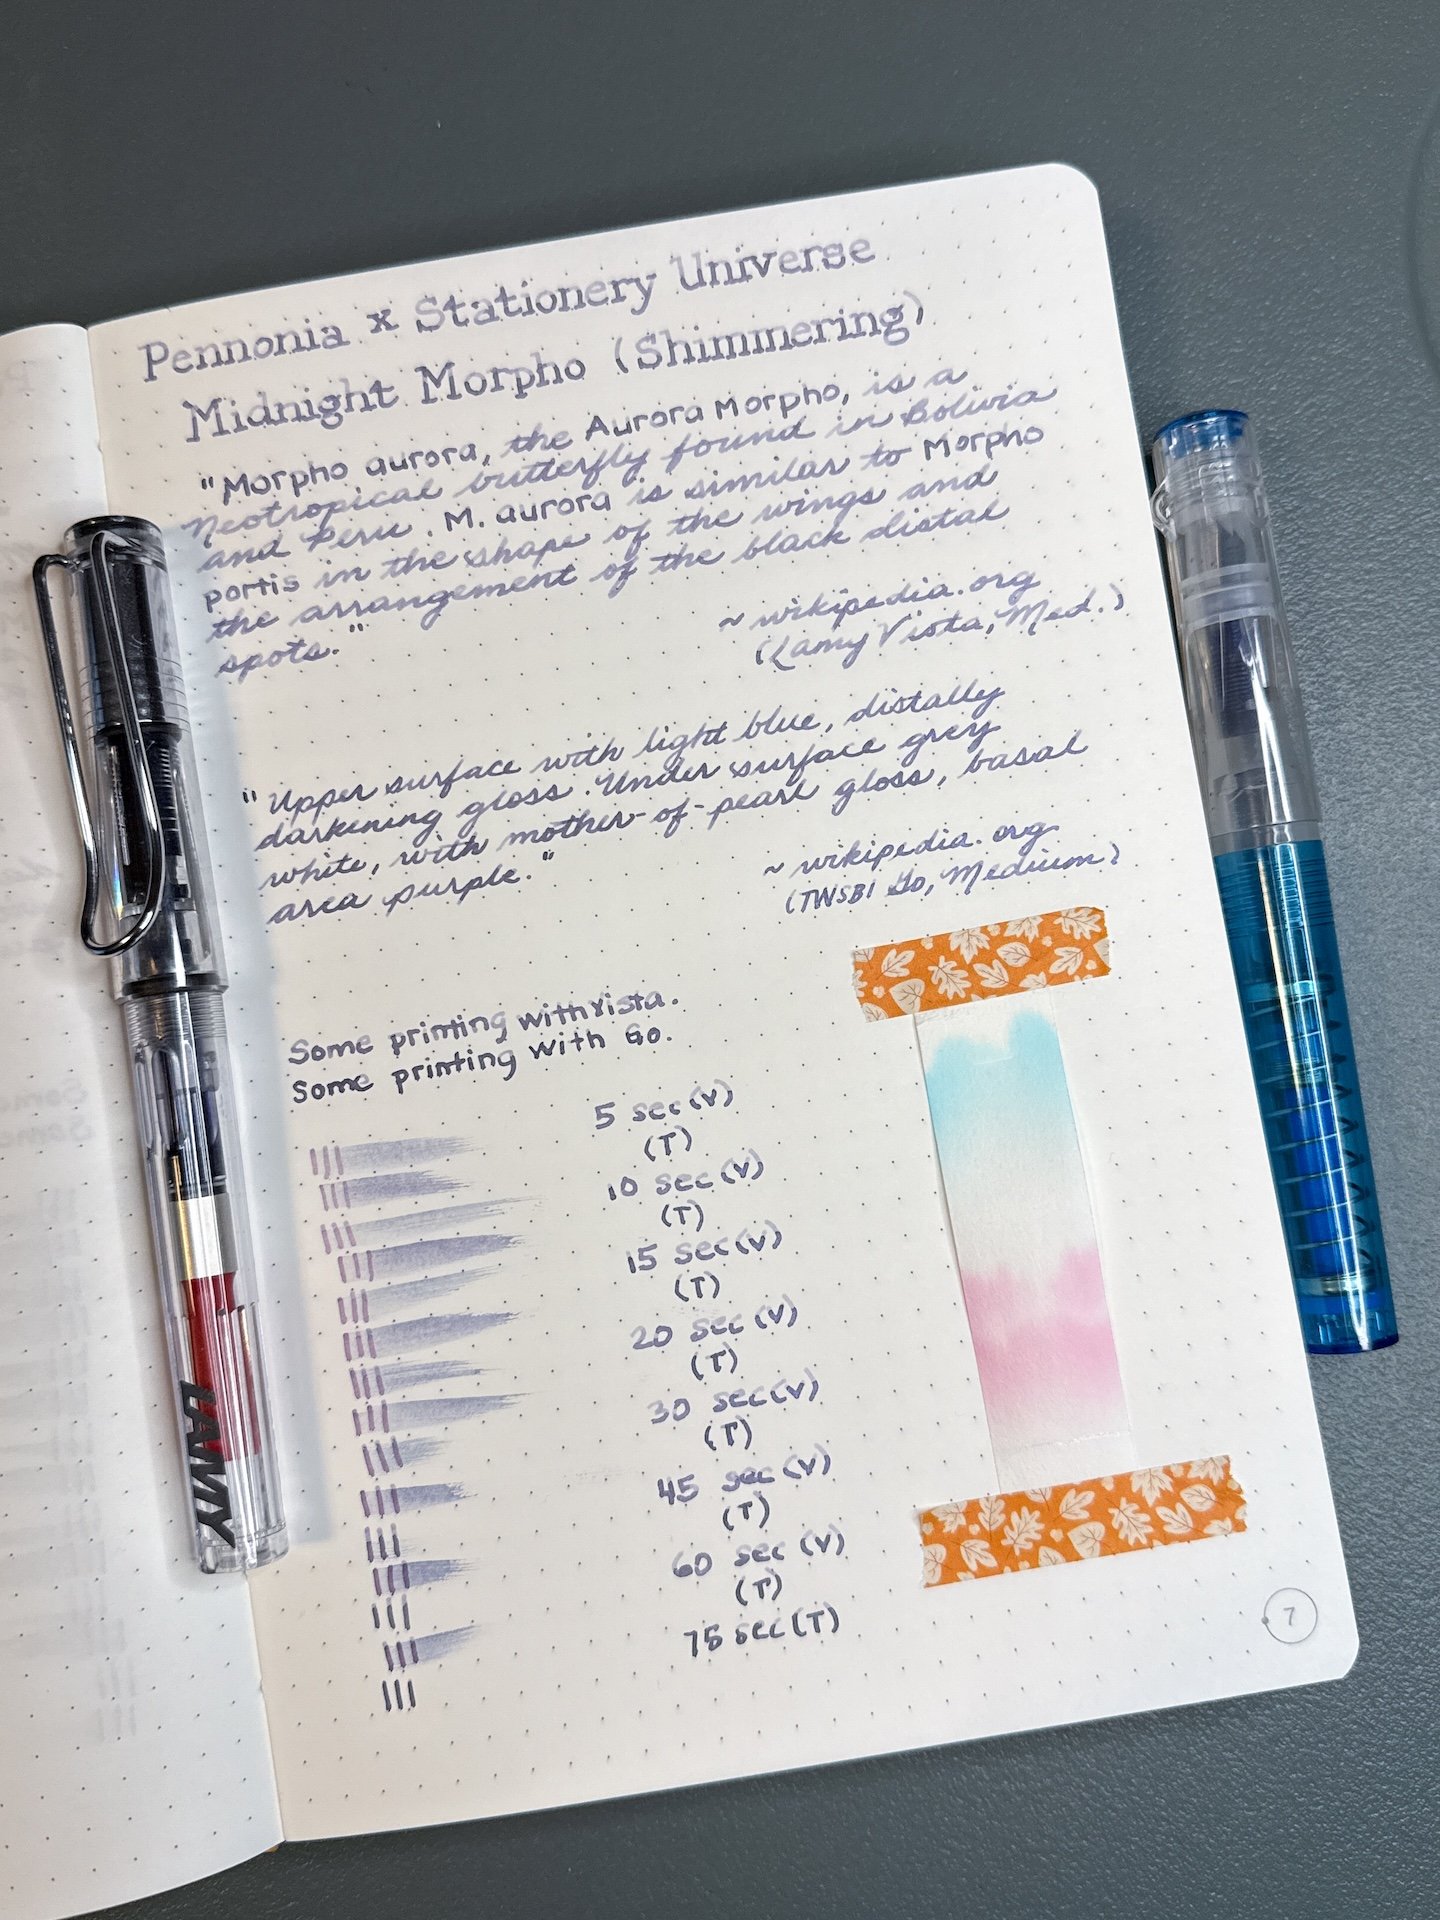 Pennonia x Stationery Universe
Midnight Morpho (Shimmering)
"Morpho aurora, the Aurora Morpho, is a
Neotropical butterfly found in Bolivia
and Peru. M. aurora is similar to Morpho
portis in the shape of the wings and
the arrangement of the black distal
spots."
~ wikipedia.org
(Lamy Vista, Med.)
"Upper surface with light blue, distally
darkening gloss. Under surface grey
white, with mother-of-pearl gloss, basal
area purple."
~ wikipedia.org
(TWSBI Go, Medium)
Some printing with Vista.
Some printing with Go.
5 sec (V)
(T)
10 sec (V)
(T)
15 sec (V)
(T)
20 sec (V)
(T)
30 sec (V)
(T)
45 sec (V)
(T)
60 sec (V)
(T)
75 sec (T)
7
LAMY